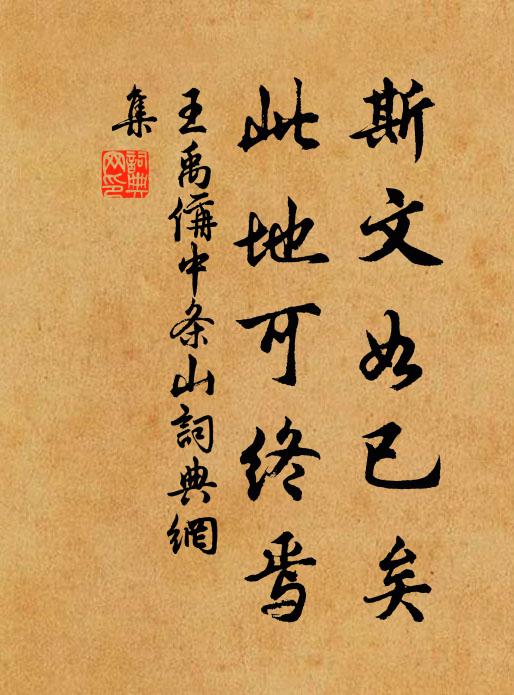 斯文如已矣
此地可终焉
王禹偁中条山詞典網
集
詞典
网印